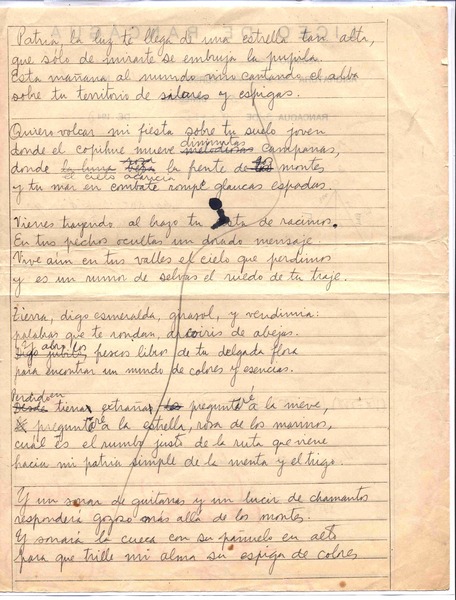 Patria, la luz te llega de una estrella tan alta,
que sólo de mirarte se embruja la pupila.
Esta mañana al mundo vino cantando el alba
sobre tu territorio de salares y espigas.
Quiero volcar mi fiesta sobre tu suelo joven
diminutas
donde el copihue mueve melodiosas campanas,
donde la luna besa la frente de los montes
el cielo acaricia
y tu mar en combate rompe glaucas espadas.
Vienes trayendo al brazo tu cesta de racimos.
En tus pechos ocultas un dorado mensaje
Vive aún en tus valles el cielo que perdimos
y es un rumor de selvas el ruedo de tu traje.
Tierra, digo esmeralda, girasol, y vendimia:
palabras que te rondan, arcoiris de abejas.
Y abro los
Digo pesces libros de tu delgada flora
para encontrar un mundo de colores y esencias.
Perdido en
Desde tierra extraña, preguntaré a la nieve,
preguntaré a la estrella, rosa de los marinos,
cuál es el rumbo justo de la ruta que viene
hacia mi patria simple de la menta y el trigo.
Y un sonar de guitarras y un lucir de chamantos
responderá gozoso más allá de los montes.
Y sonará la cueca con su pañuelo en alto
para que trille mi alma su espiga de colores
RANCAGUA